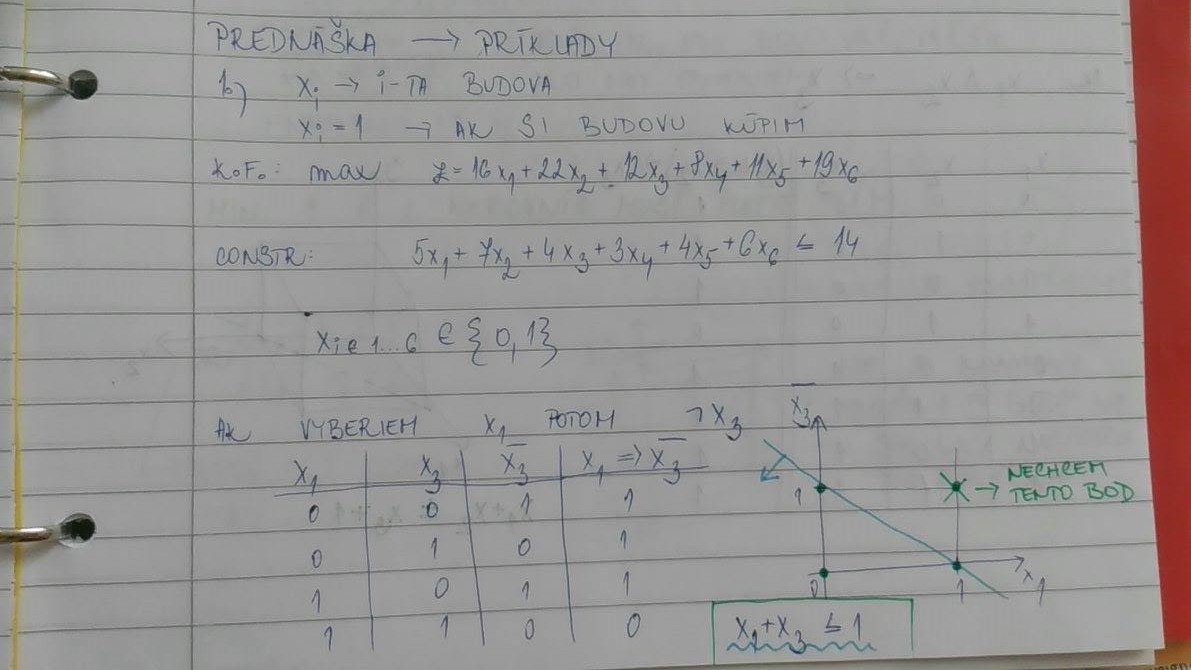 PREDNÁŠKA → PRÍKLADY
1) xᵢ → i-TA BUDOVA
xᵢ = 1 → AK SI BUDOVU KÚPIM
K.F.: max z = 16x₁ + 22x₂ + 12x₃ + 8x₄ + 11x₅ + 19x₆
CONSTR: 5x₁ + 7x₂ + 4x₃ + 3x₄ + 4x₅ + 6x₆ ≤ 14
xᵢ∈1...6 ∈ {0,1}
AK VYBERIEM x₁ POTOM ¬x₃
x₁ x₃ x̄₃ x₁ => x̄₃
0 0 1 1
0 1 0 1
1 0 1 1
1 1 0 0
x̄₃
1
→ NECHCEM
TENTO BOD
0 1 x₁
x₁ + x₃ ≤ 1